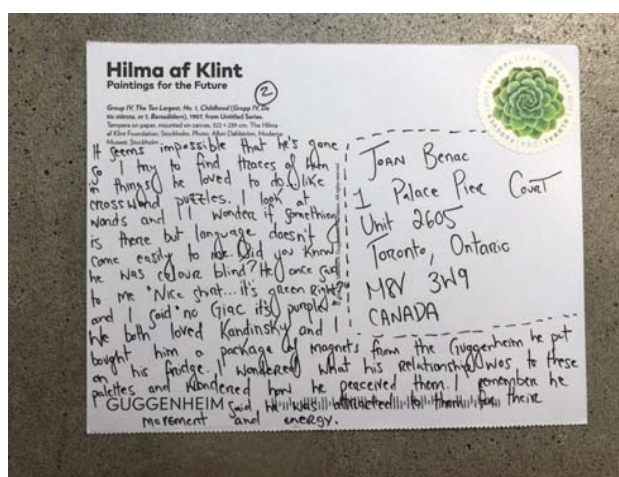 Hilma af Klint
Paintings for the Future
②
Group IV, The Ten Largest, No. 1, Childhood (Grupp IV, De
tio största, nr 1, Barnaåldern), 1907, from Untitled Series.
Tempera on paper, mounted on canvas, 322 × 239 cm. The Hilma
af Klint Foundation, Stockholm. Photo: Albin Dahlström, Moderna
Museet, Stockholm
It seems impossible that he's gone
so I try to find traces of him
in things he loved to do like
crossword puzzles. I look at
words and I wonder if something
is there but language doesn't
come easily to me. Did you know
he was colour blind? He once said
to me "Nice shirt... it's green right?"
and I said "no Giac it's purple"
We both loved Kandinsky and I
bought him a package of magnets from the Guggenheim he put
on his fridge. I wondered what his relationship was to these
palettes and wondered how he perceived them. I remember he
said he was attracted to them for their
movement and energy.
GUGGENHEIM
Joan Benac
1 Palace Pier Court
Unit 2605
Toronto, Ontario
M8V 3W9
CANADA